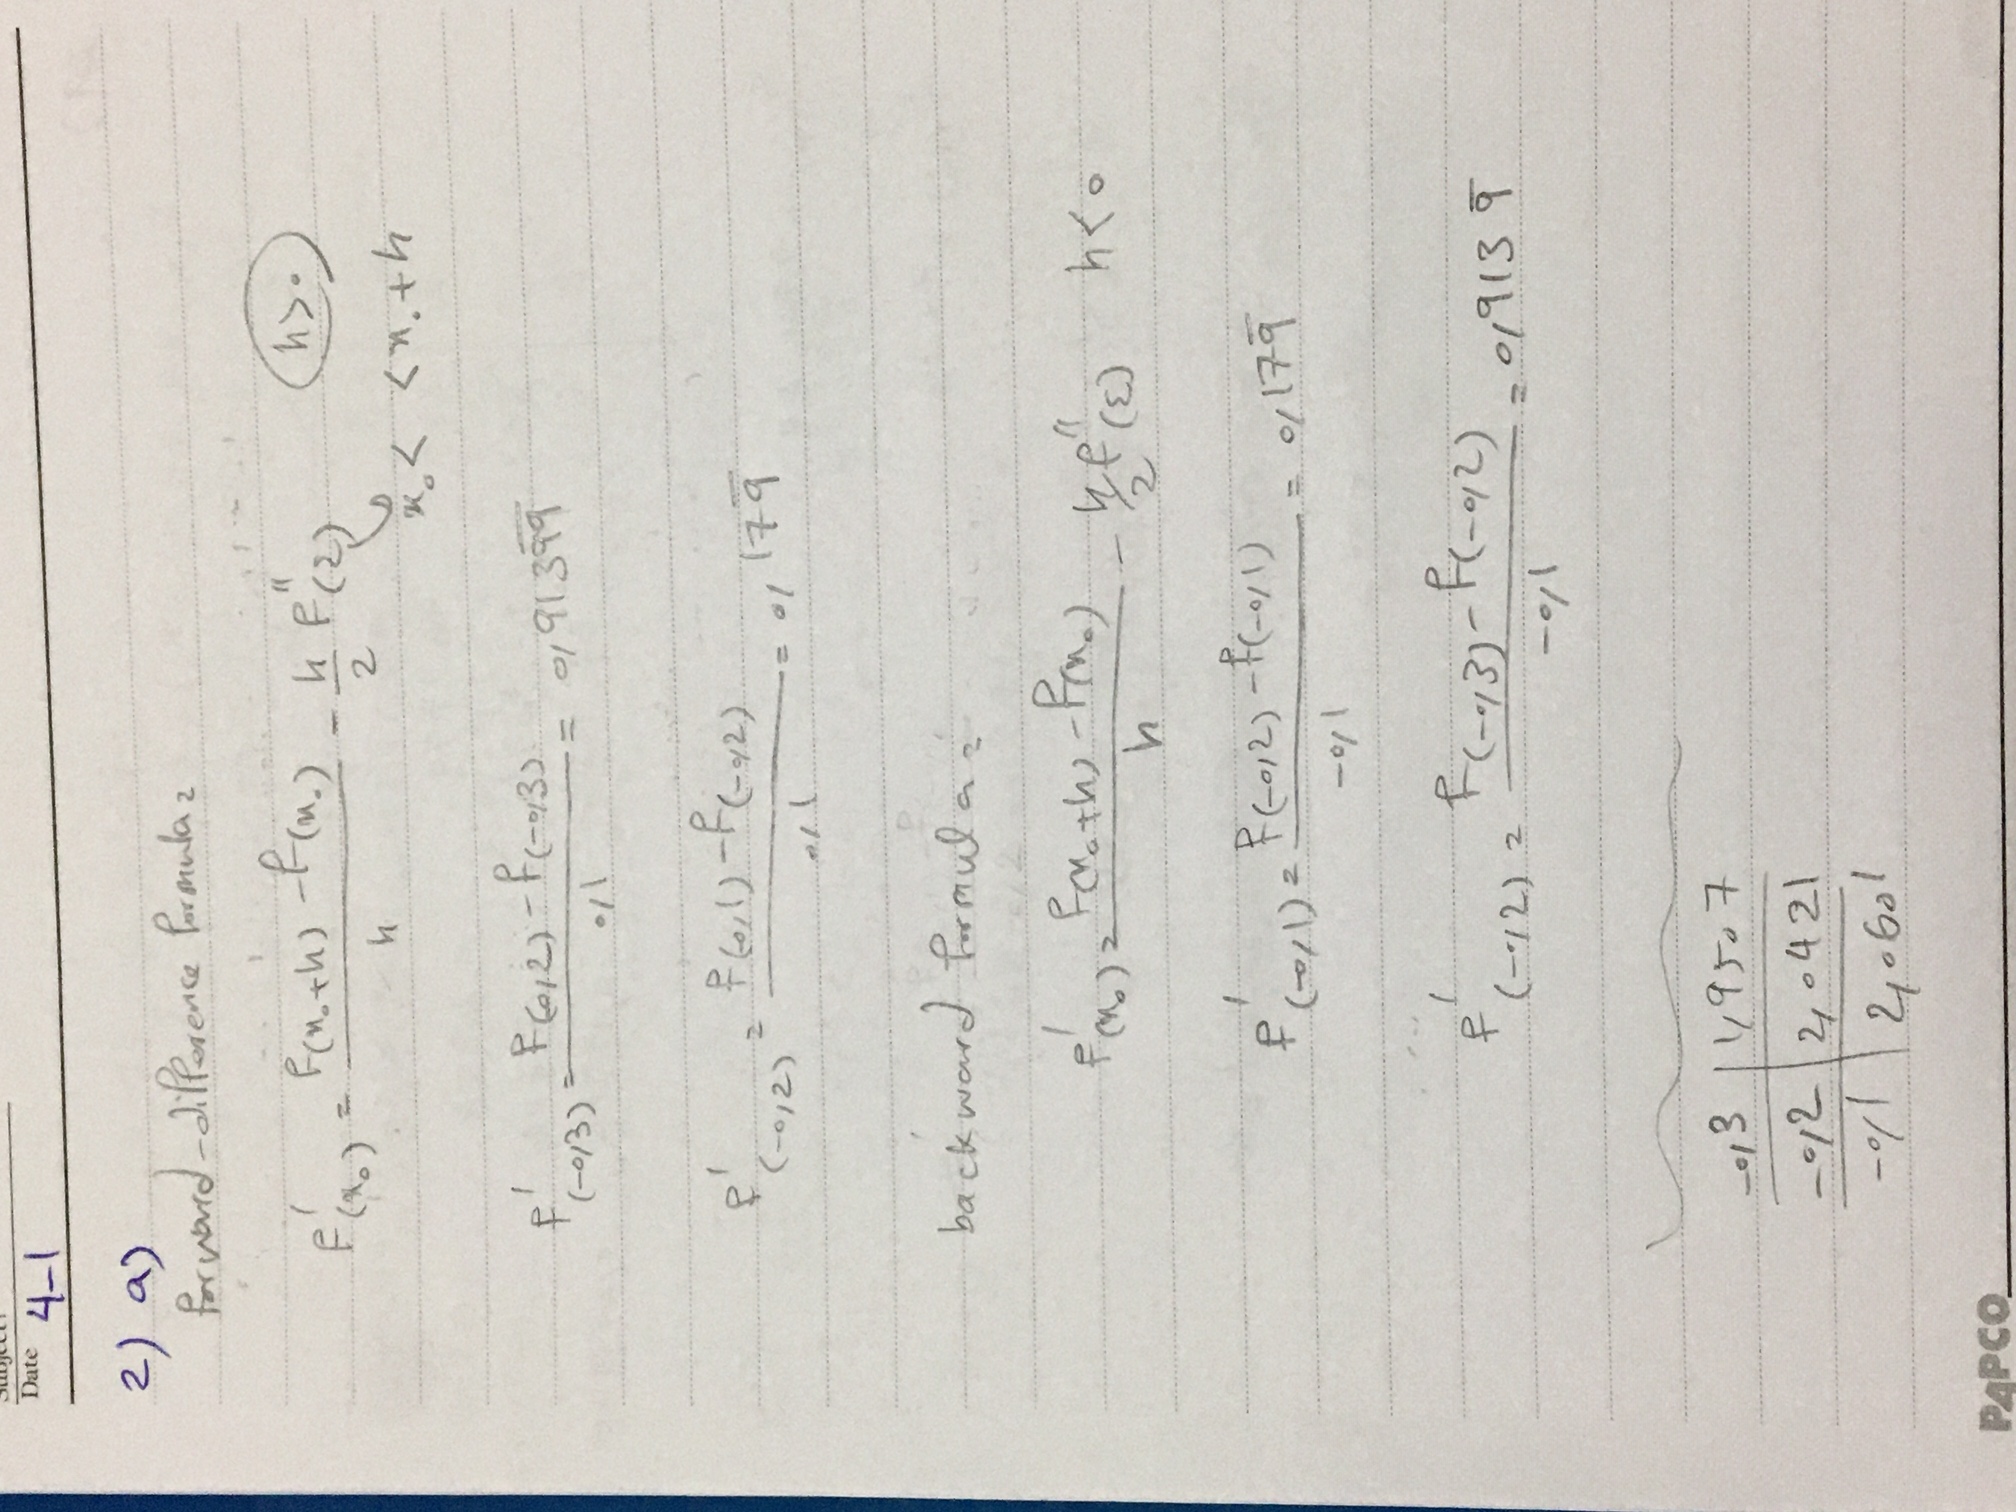 Subject:
Date 4-1
2) a)
forward-difference formula:
f'(x₀) = (f(x₀+h) - f(x₀)) / h - h/2 f''(ξ) h>0
x₀< <x₀+h
f'(-0,3) = (f(-0,2) - f(-0,3)) / 0,1 = 0,9139̅9̅
f'(-0,2) = (f(-0,1) - f(-0,2)) / 0,1 = 0,179̅
backward formula:
f'(x₀) = (f(x₀+h) - f(x₀)) / h - h/2 f''(ξ) h<0
f'(-0,1) = (f(-0,2) - f(-0,1)) / -0,1 = 0,179̅
f'(-0,2) = (f(-0,3) - f(-0,2)) / -0,1 = 0,9139̅
-0,3 | 1,9507
-0,2 | 2,0421
-0,1 | 2,0601
PAPCO